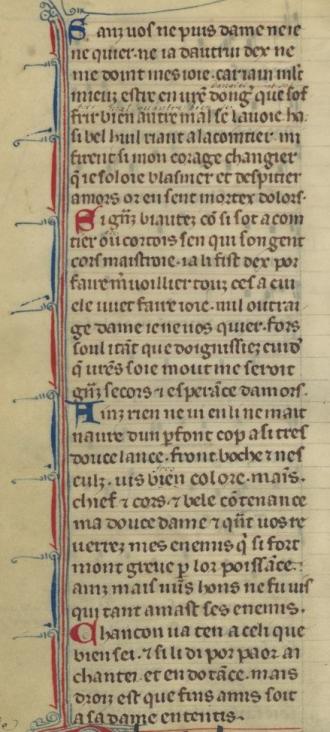 Sanz uos ne puis dame ne ie
ne quier. ne ia dautrui dex ne
me doint mes ioie. car iain mlt
mieuz estre en ure dong̃ que sof
frir bien autre mal se lauoie. ha.
si bel huil riant a lacointier. mi
firent si mon corage changier
q̃ ie soloie blasmer et despitier
amors or en sent mortex dolors.
Si gñz biautez cõ si sot acoin
tier ou cortois sen qui son gent
cors maistroie. ia li fist dex por
faire m̃uoillier touz ces a cui
ele uuet faire ioie. nul outrai
ge dame ie ne uos quier. fors
soul itãt que doignissiez cuid
q̃ ures soie mout me seroit
gñz secors ⁊ esperãce damors.
Ainz rien ne ui en li ne mait
naure dun pfont cop a si tres
douce lance. front boche ⁊ nes
eulz. uis bien colore. mains.
chief ⁊ cors. ⁊ bele cõtenance
ma douce dame ⁊ qñt uos re
uerrez mes enemis q̃ si fort
mont greue p lor poissãce.
ainz mais uiis hons ne fu uis
qui tant amast ses enemis.
Chancon ua ten a celi que
bien sei. ⁊ si li di por paor ai
chante. et en dotãce. mais
droiz est que fins amis soit
a sa dame ententis.